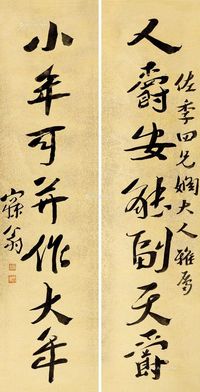 人爵安能副天爵
佐季四兄姻大人雅属
小年可并作大年
寐翁